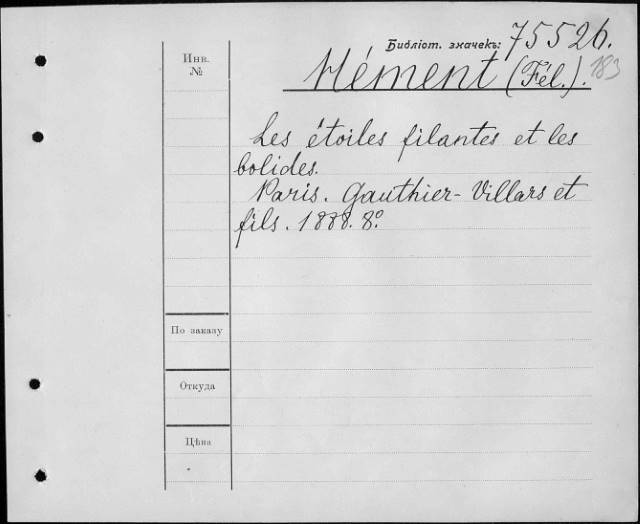 Библіот. значекъ: 75526.
183
Инв.
№
Mément (Fél.).
Les étoiles filantes et les
bolides.
Paris. Gauthier-Villars et
fils. 1888. 8º.
По заказу
Откуда
Цѣна